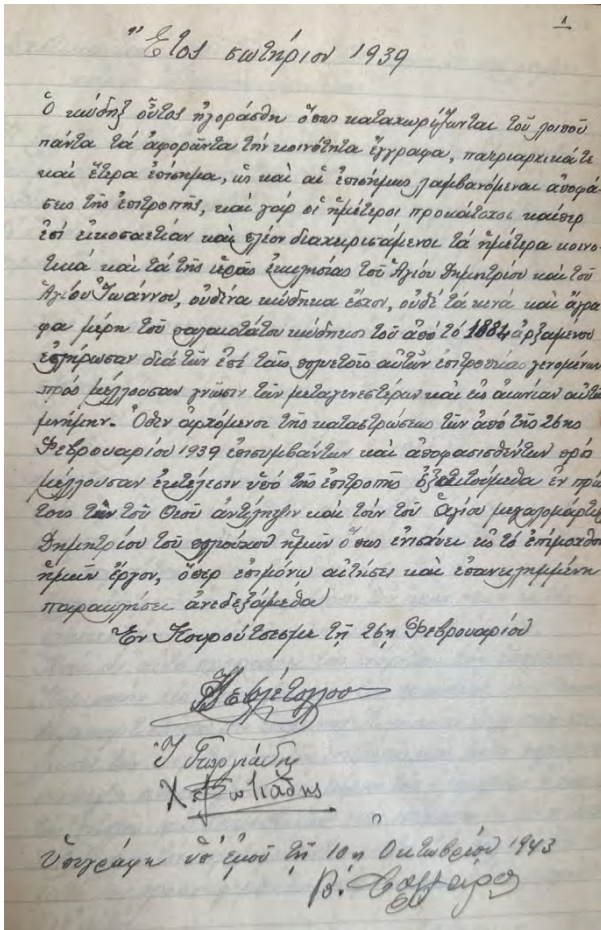 1
Ἔτος σωτήριον 1939
Ὁ κώδηξ οὗτος ἠγοράσθη ὅπως καταχωρίζωνται τοῦ λοιποῦ
πάντα τά ἀφορῶντα τήν κοινότητα ἔγγραφα, πατριαρχικά τε
καί ἕτερα ἐπίσημα, ὡς καί αἱ ἐπισήμως λαμβανόμεναι ἀποφά-
σεις τῆς ἐπιτροπῆς, καί γάρ οἱ ἡμέτεροι προκάτοχοι καίπερ
ἐπί εἰκοσαετίαν καί πλέον διαχειρισάμενοι τά ἡμέτερα κοινο-
τικά καί τά τῆς ἱερᾶς ἐκκλησίας τοῦ Ἁγίου Δημητρίου καί τοῦ
Ἁγίου Ἰωάννου, οὐδένα κώδηκα ἔσχον, οὐδέ τά κενά καί ἄγρα-
φα μέρη τοῦ παλαιοτάτου κώδηκος τοῦ ἀπό τό 1884 ἀρξαμένου
ἐπλήρωσαν διά τῶν ἐπί τῆς πολυετοῦς αὐτῶν ἐπιτροπείας γενομένων
πρός μέλλουσαν γνῶσιν τῶν μεταγενεστέρων καί εἰς αἰωνίαν αὐτῶν
μνήμην. Ὅθεν ἀρχόμενοι τῆς καταστρώσεως τῶν ἀπό τῆς 26ης
Φεβρουαρίου 1939 ἐπισυμβάντων καί ἀποφασισθέντων πρό
μέλλουσαν ἐκτέλεσιν ὑπό τῆς ἐπιτροπῆς ἐξαιτούμεθα ἐν πρώ
τοις τήν τοῦ Θεοῦ ἀντίληψιν καί τήν τοῦ ἁγίου μεγαλομάρτυ
Δημητρίου τοῦ πολιούχου ἡμῶν ὅπως ἐνισχύει εἰς τό ἐπίμοχθον
ἡμῶν ἔργον, ὅπερ ἐπιμόνῳ αἰτήσει καί ἐπανειλημμένῃ
παρακλήσει ἀνεδεξάμεθα
Ἐν Κουρούτσεσμε τῇ 26η Φεβρουαρίου
Ἰ Γεωργιάδης
Χ Φωτιάδης
Ὑπεγράφη ὑπ' ἐμοῦ τῇ 10η Ὀκτωβρίου 1943